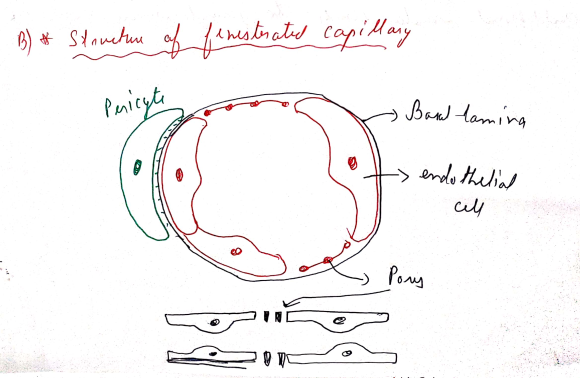 B) * Structure of fenestrated capillary
Pericyte
Basal lamina
endothelial
cell
Pores